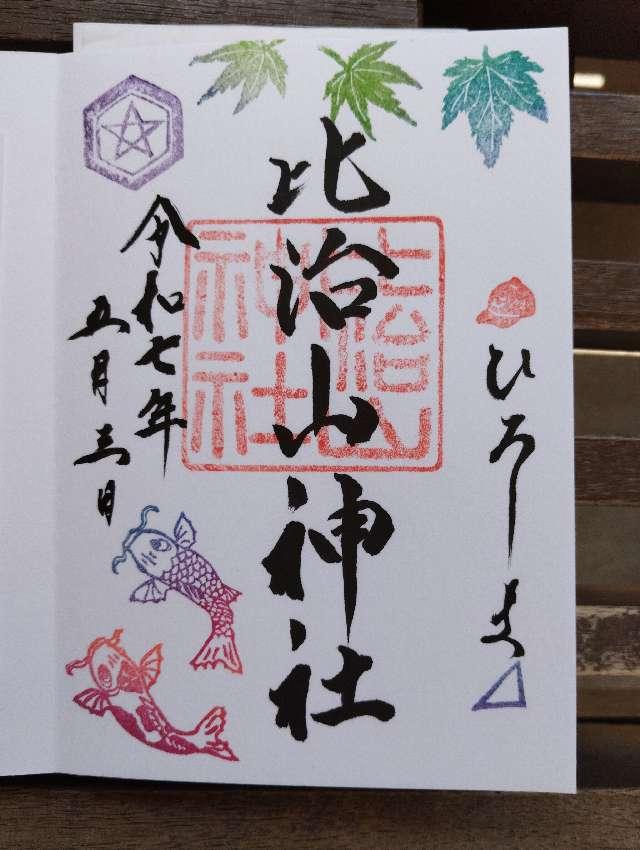 ひろしま
比治山神社
比治山神社
令和七年
五月三日